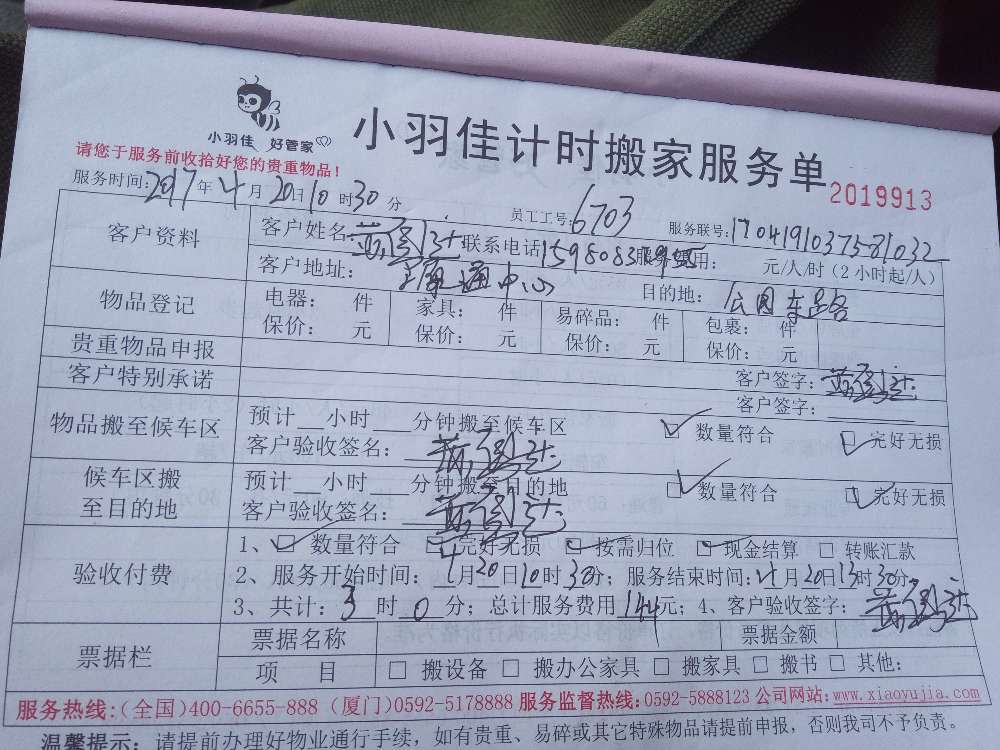 小羽佳 好管家
小羽佳计时搬家服务单
2019913
请您于服务前收拾好您的贵重物品！
服务时间：2017年4月20日10时30分 员工工号：6703 服务联号：1704191037581032
客户资料 客户姓名： 联系电话 服务费用： 元/人/时（2小时起/人）
客户地址： 通中心 目的地：
物品登记 电器： 件 家具： 件 易碎品： 件 包裹： 件
保价： 元 保价： 元 保价： 元 保价： 元
贵重物品申报 客户签字：
客户特别承诺 客户签字：
物品搬至候车区 预计__小时___分钟搬至候车区 ☑ 数量符合 ☑ 完好无损
客户验收签名：
候车区搬至目的地 预计__小时___分钟搬至目的地 ☑ 数量符合 ☑ 完好无损
客户验收签名：
验收付费 1、☑ 数量符合 ☑ 完好无损 ☑ 按需归位 ☑ 现金结算 □ 转账汇款
2、服务开始时间：4月20日10时30分；服务结束时间：4月20日13时30分。
3、共计：3时0分；总计服务费用144元；4、客户验收签字：
票据栏 票据名称 票据金额
项 目 □ 搬设备 □ 搬办公家具 □ 搬家具 □ 搬书 □ 其他：
服务热线：（全国）400-6655-888（厦门）0592-5178888 服务监督热线：0592-5888123 公司网站：www.xiaoyujia.com
温馨提示：请提前办理好物业通行手续，如有贵重、易碎或其它特殊物品请提前申报，否则我司不予负责。